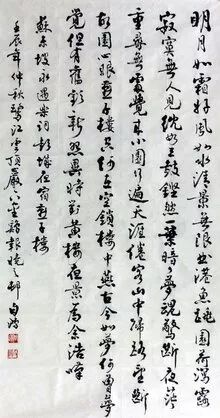 明月如霜好風如水清景無限曲港魚跳圓荷瀉露
寂寞無人見紞如三鼓鏗然一葉黯黯夢魂驚斷夜茫
重尋無處覺來小園行遍天涯倦客山中歸路望斷
故園心眼燕子樓何在空鎖樓中燕古今如夢何曾夢
覺但有舊歡新怨異時對黃樓夜景為余浩嘆
蘇東坡永遇樂詞彭城夜宿燕子樓
壬辰年仲秋鷺江雲頂巖鷄報曉之邨白